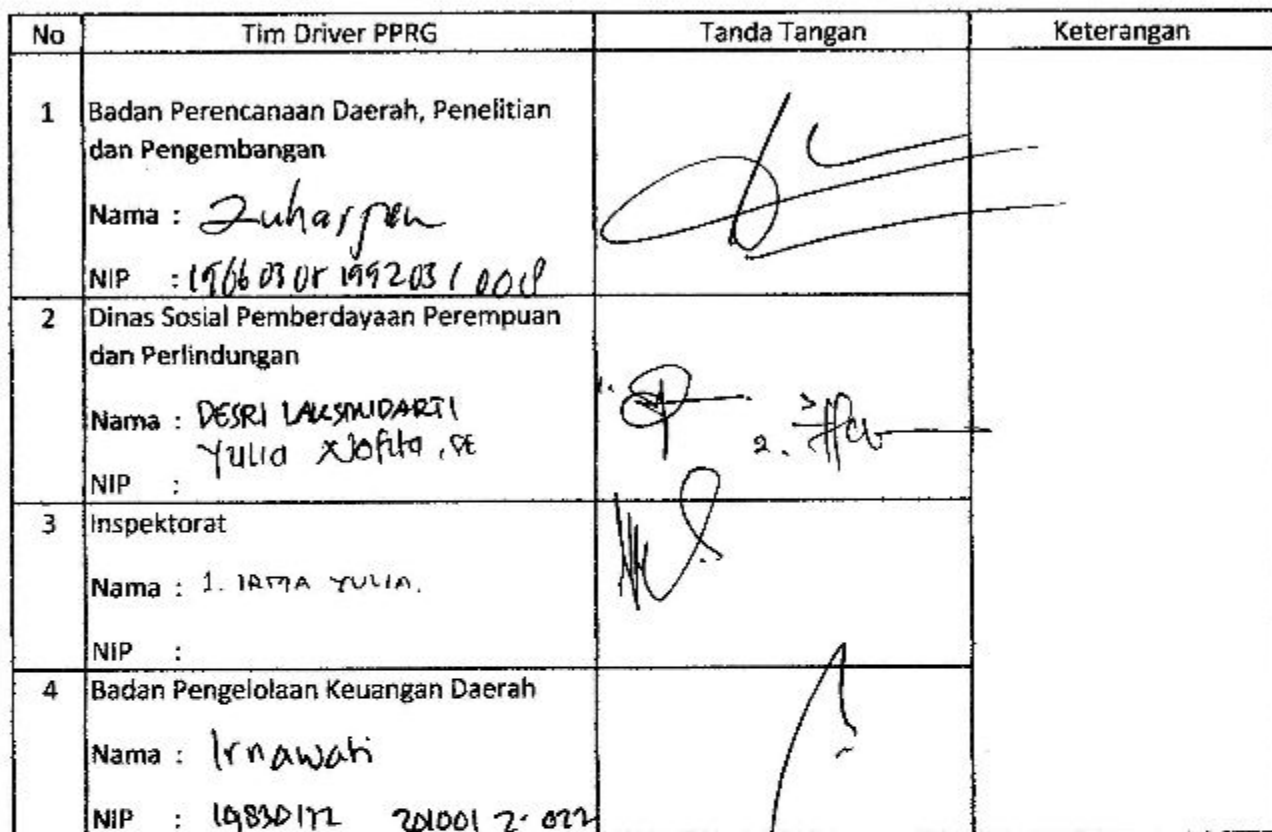 No Tim Driver PPRG Tanda Tangan Keterangan
1 Badan Perencanaan Daerah, Penelitian
dan Pengembangan
Nama : Zuharpen
NIP :
2 Dinas Sosial Pemberdayaan Perempuan
dan Perlindungan
1.
Nama : DESRI LAKSMIDARTI
Yulia Nofita, SE
2.
NIP :
3 Inspektorat
Nama : 1. IRMA YULIA.
NIP :
4 Badan Pengelolaan Keuangan Daerah
Nama : Irnawati
NIP : 201001 2 022